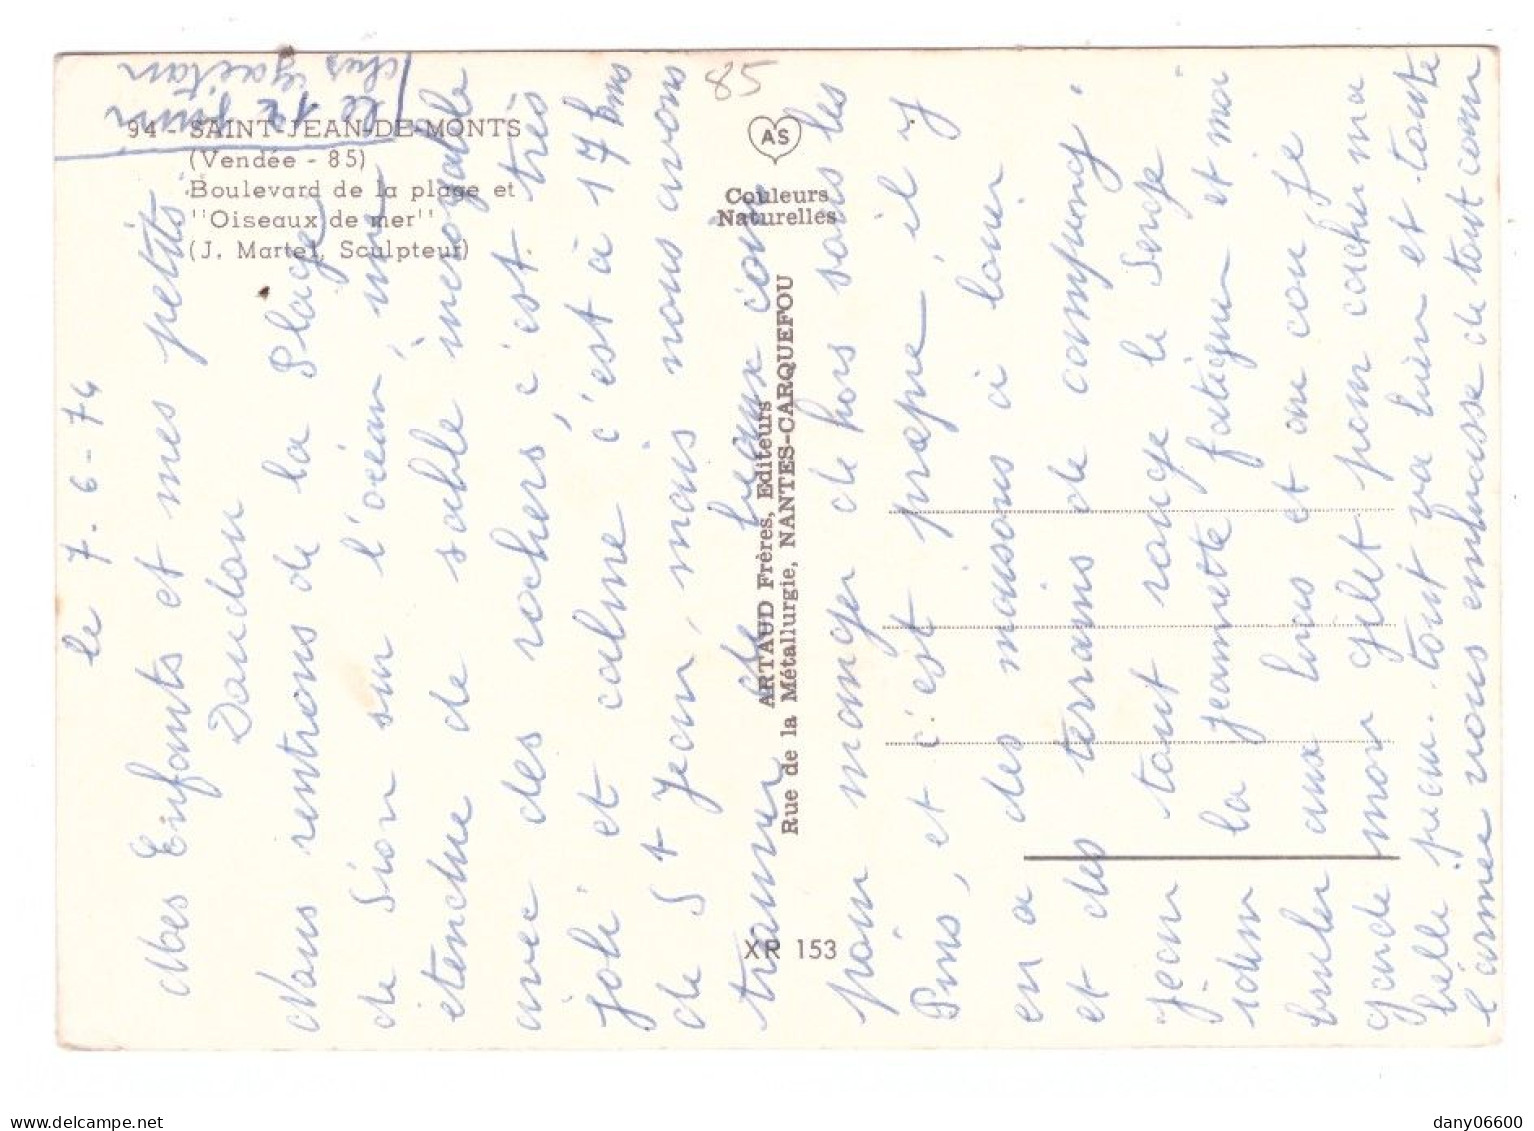 94 - SAINT-JEAN-DE-MONTS
(Vendée - 85)
Boulevard de la plage et
"Oiseaux de mer"
(J. Martel, Sculpteur)
85
AS
Couleurs
Naturelles
ARTAUD Frères, Editeurs
Rue de la Métallurgie, NANTES-CARQUEFOU
XR 153
chez Gaëtan
le 12 juin
le 7-6-74
Mes Enfants et mes petits
Nous rentrons de la Plage
de Sion sur l'océan,
étendue de sable incroyable
avec des rochers c'est très
joli et calme c'est à 17 kms
de St Jean, mais nous avons
trouver de beaux coin
pour manger dehors sous les
Pins, et c'est propre il y
en a des maisons à louer
et des terrains de camping.
Jean tout rouge le Serge
idem la jeannette fatiguer et moi
bruler aux bras et au cou je
garde mon gilet pour cacher ma
belle peau. tout va bien et toute
l'armée vous embrasse de tout cœur